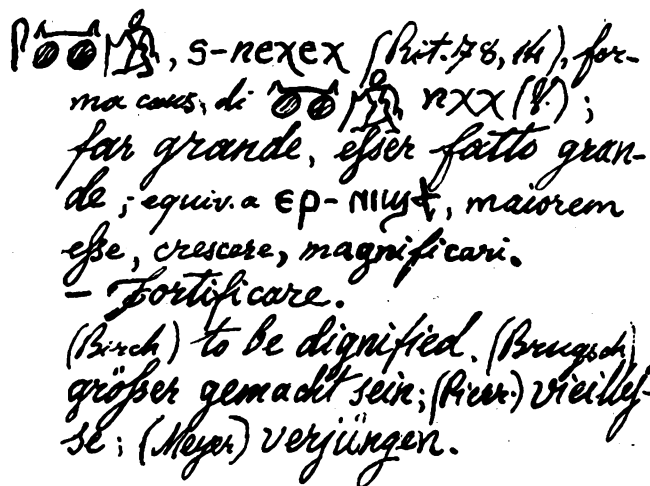 , s-neχeχ (Rit. 78, 14), for-
ma caus. di nχχ (V.);
far grande, eſser fatto gran-
de; equiv. a ⲉⲣ-ⲛⲓϣϯ, maiorem
eſse, crescere, magnificari.
— Fortificare.
(Birch) to be dignified. (Brugsch)
gröſser gemacht sein; (Pierr.) vieilleſ-
se; (Meyer) verjüngen.